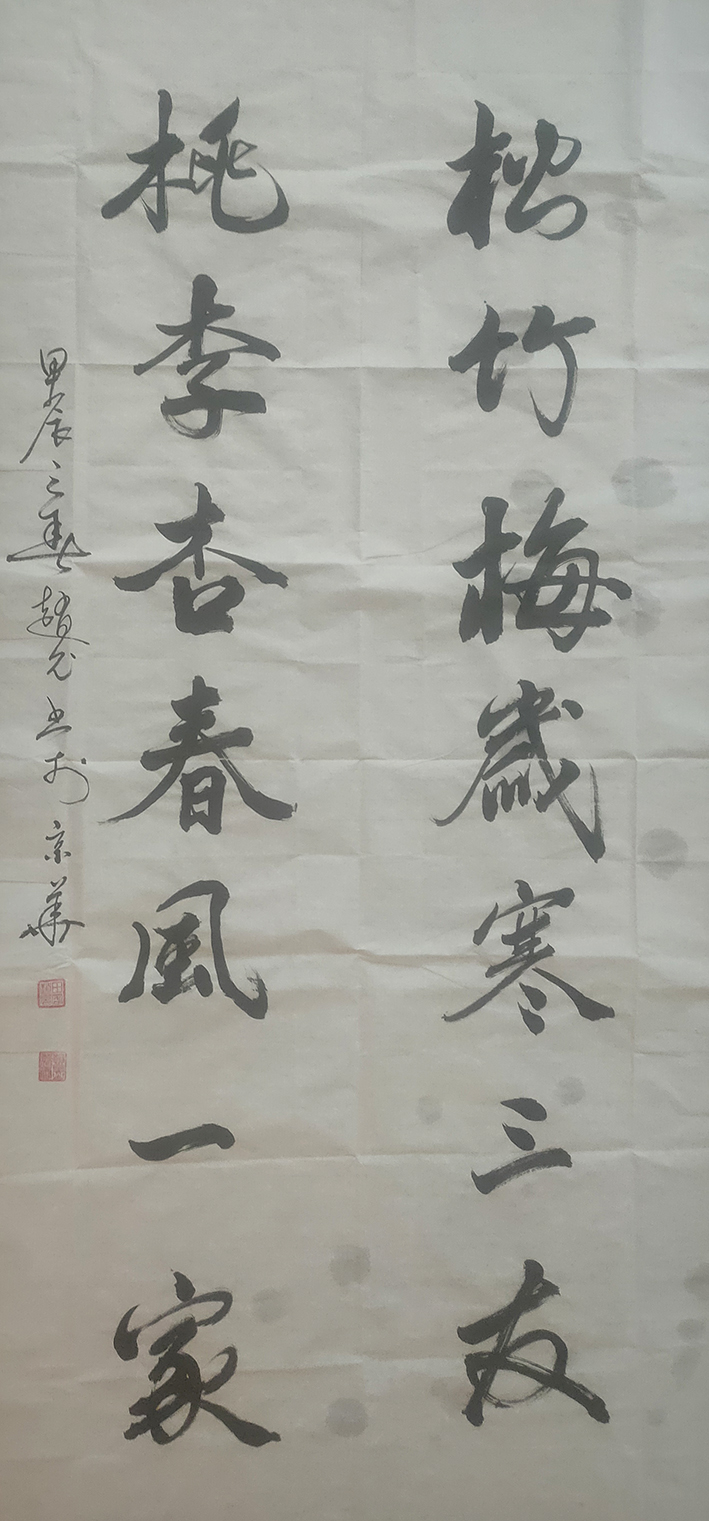 松竹梅歲寒三友
桃李杏春風一家
甲辰之春趙允书於京華